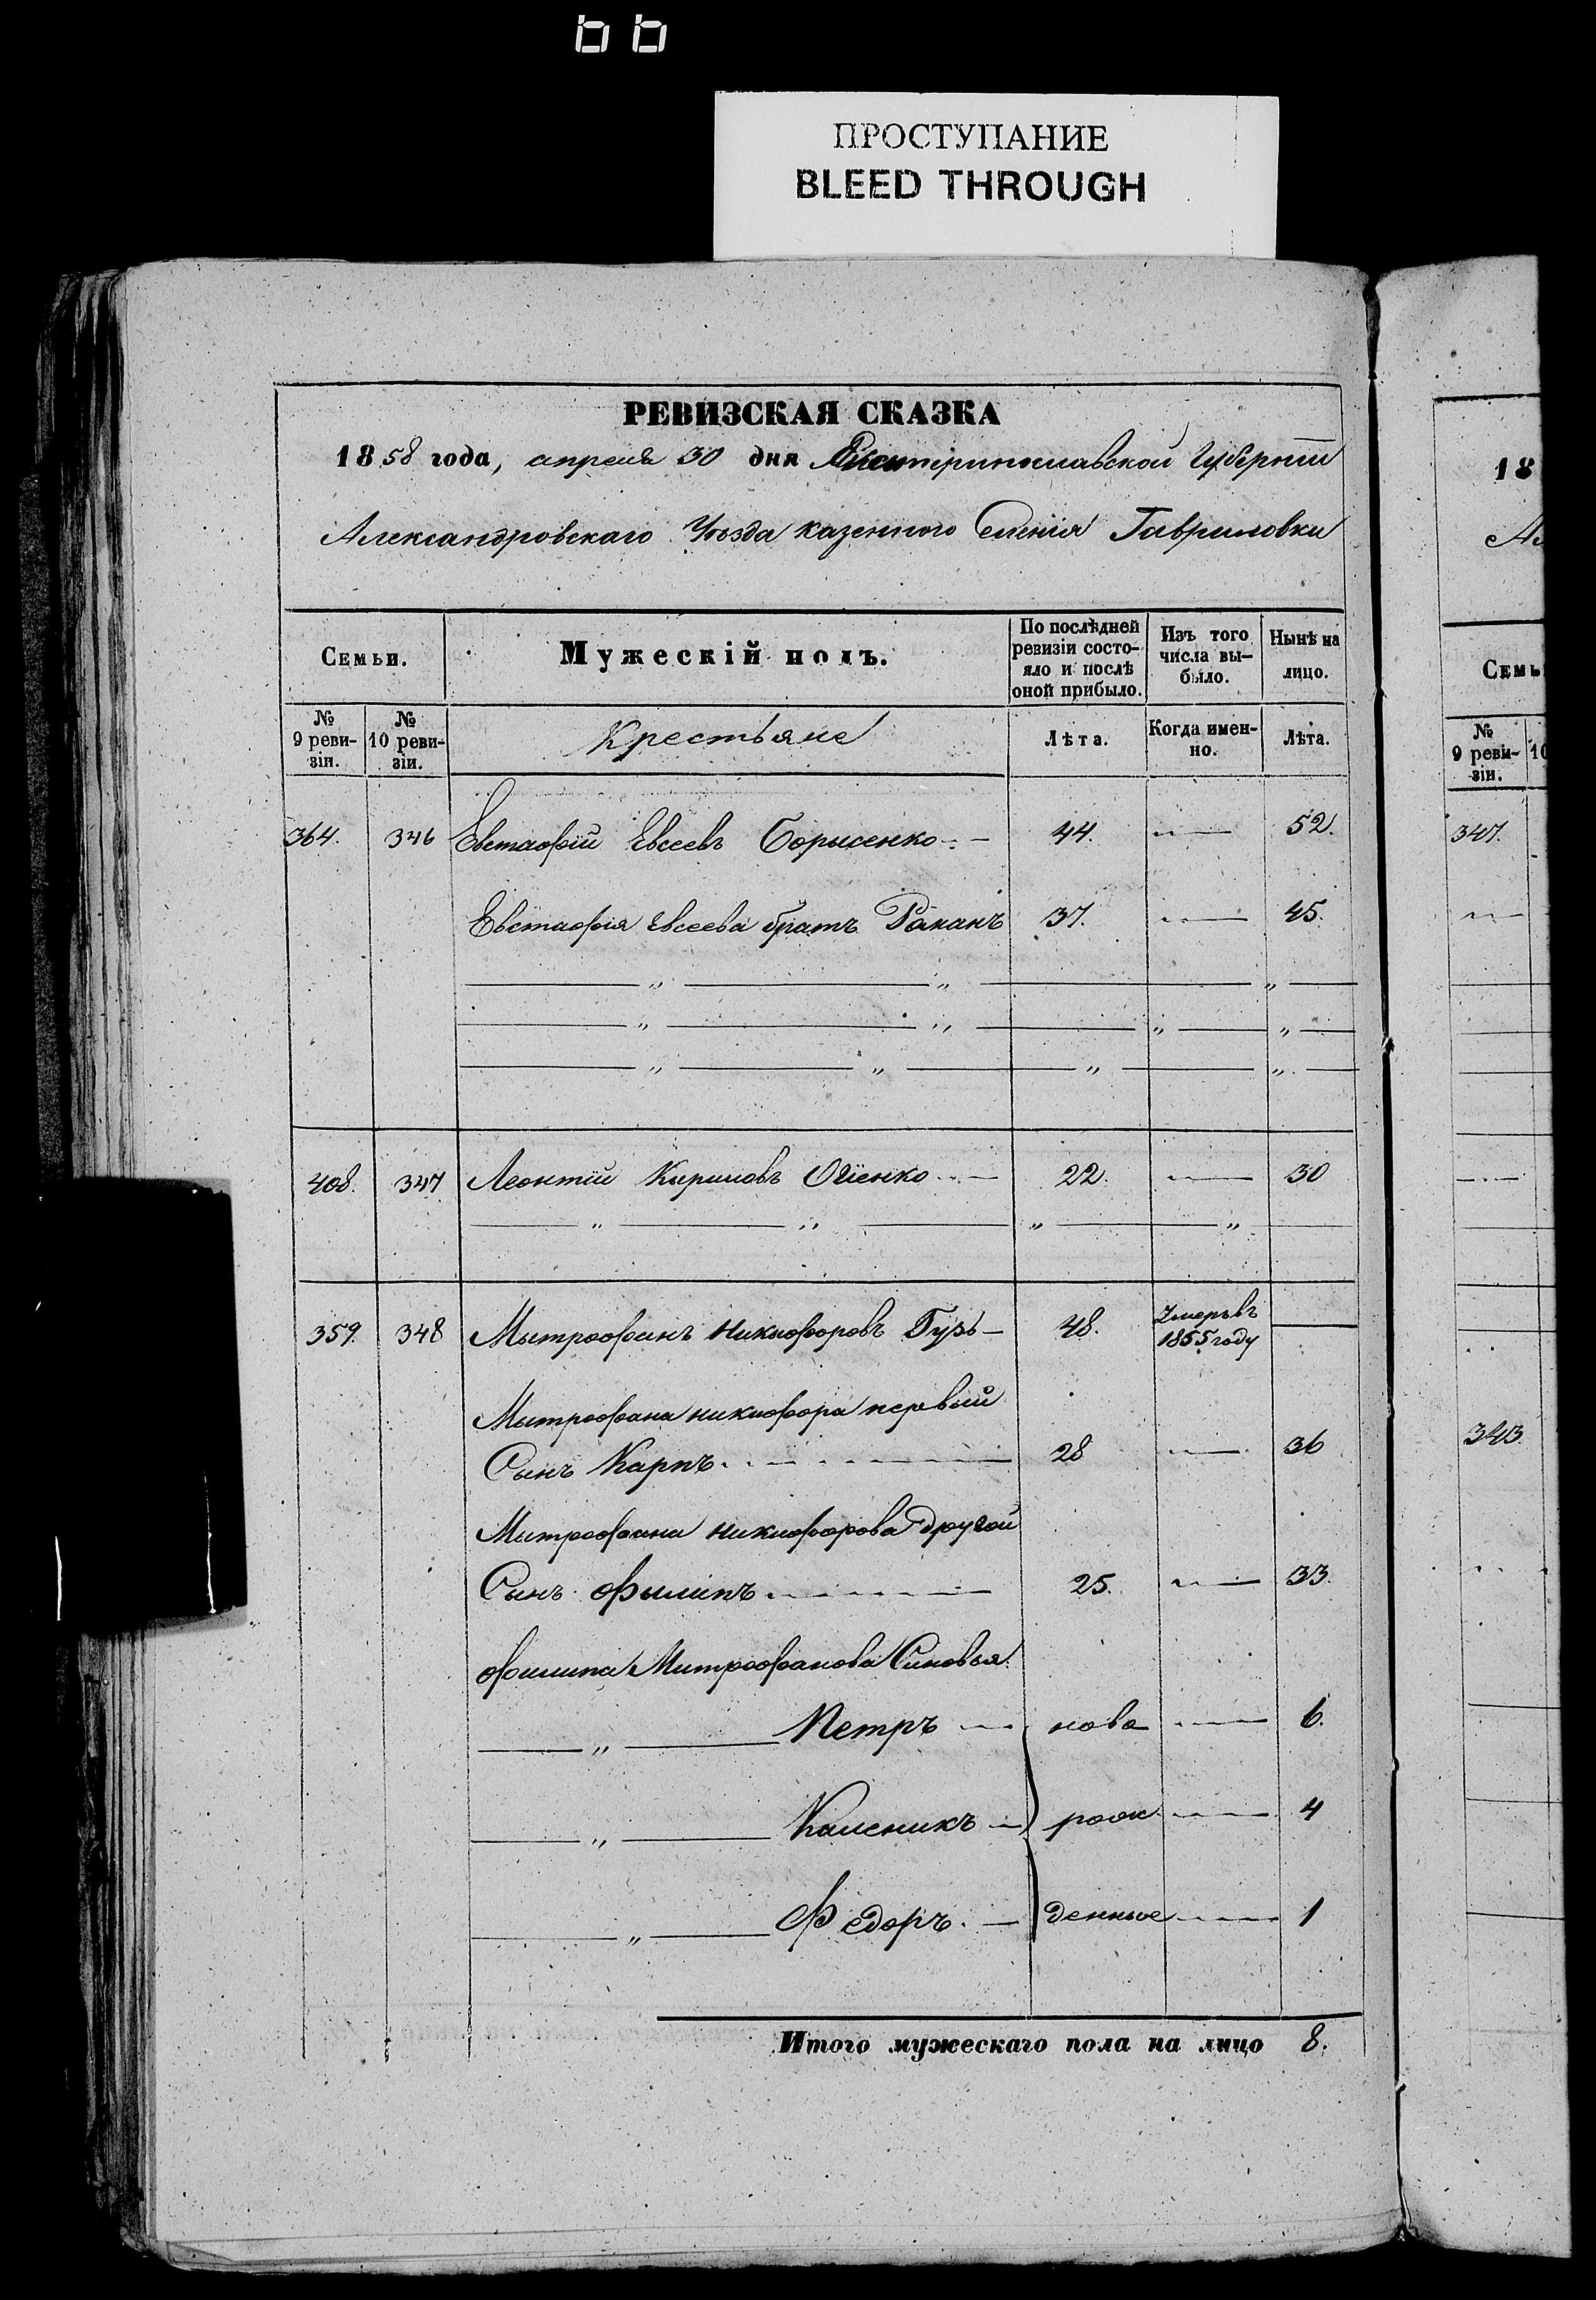 ПРОСТУПАНИЕ
BLEED THROUGH
РЕВИЗСКАЯ СКАЗКА
1858 года, апреля 30 дня Екатеринославской Губернии
Александровскаго Уѣзда казенного Селенія Гавриловки
Семьи. Мужескій полъ. По послѣдней ревизіи состояло и послѣ оной прибыло. Изъ того числа выбыло. Нынѣ на лицо.
№ 9 ревизіи. № 10 ревизіи. Крестьяне Лѣта. Когда именно. Лѣта.
364. 346 Евстафій Евсеевъ Борисенко 44. 52.
Евстафія Евсеева братъ Раманъ 37. 45.
408. 347 Леонтій Кириловъ Огіенко 22. 30
359. 348 Мытрофанъ Никифоровъ Гузь 48. Умеръ въ 1855 году
Мытрофана никифора первый
Сынъ Карпъ 28 36
Мытрофана никифорова другой
Сынъ Филипъ 25. 33.
Филипа Митрофанова Синовья
Петръ ново 6.
Каленикъ рож 4
Федоръ. денные 1
Итого мужескаго пола на лицо 8.
18
Ал
Семь
№ 9 ревизіи. 10
347.
343.